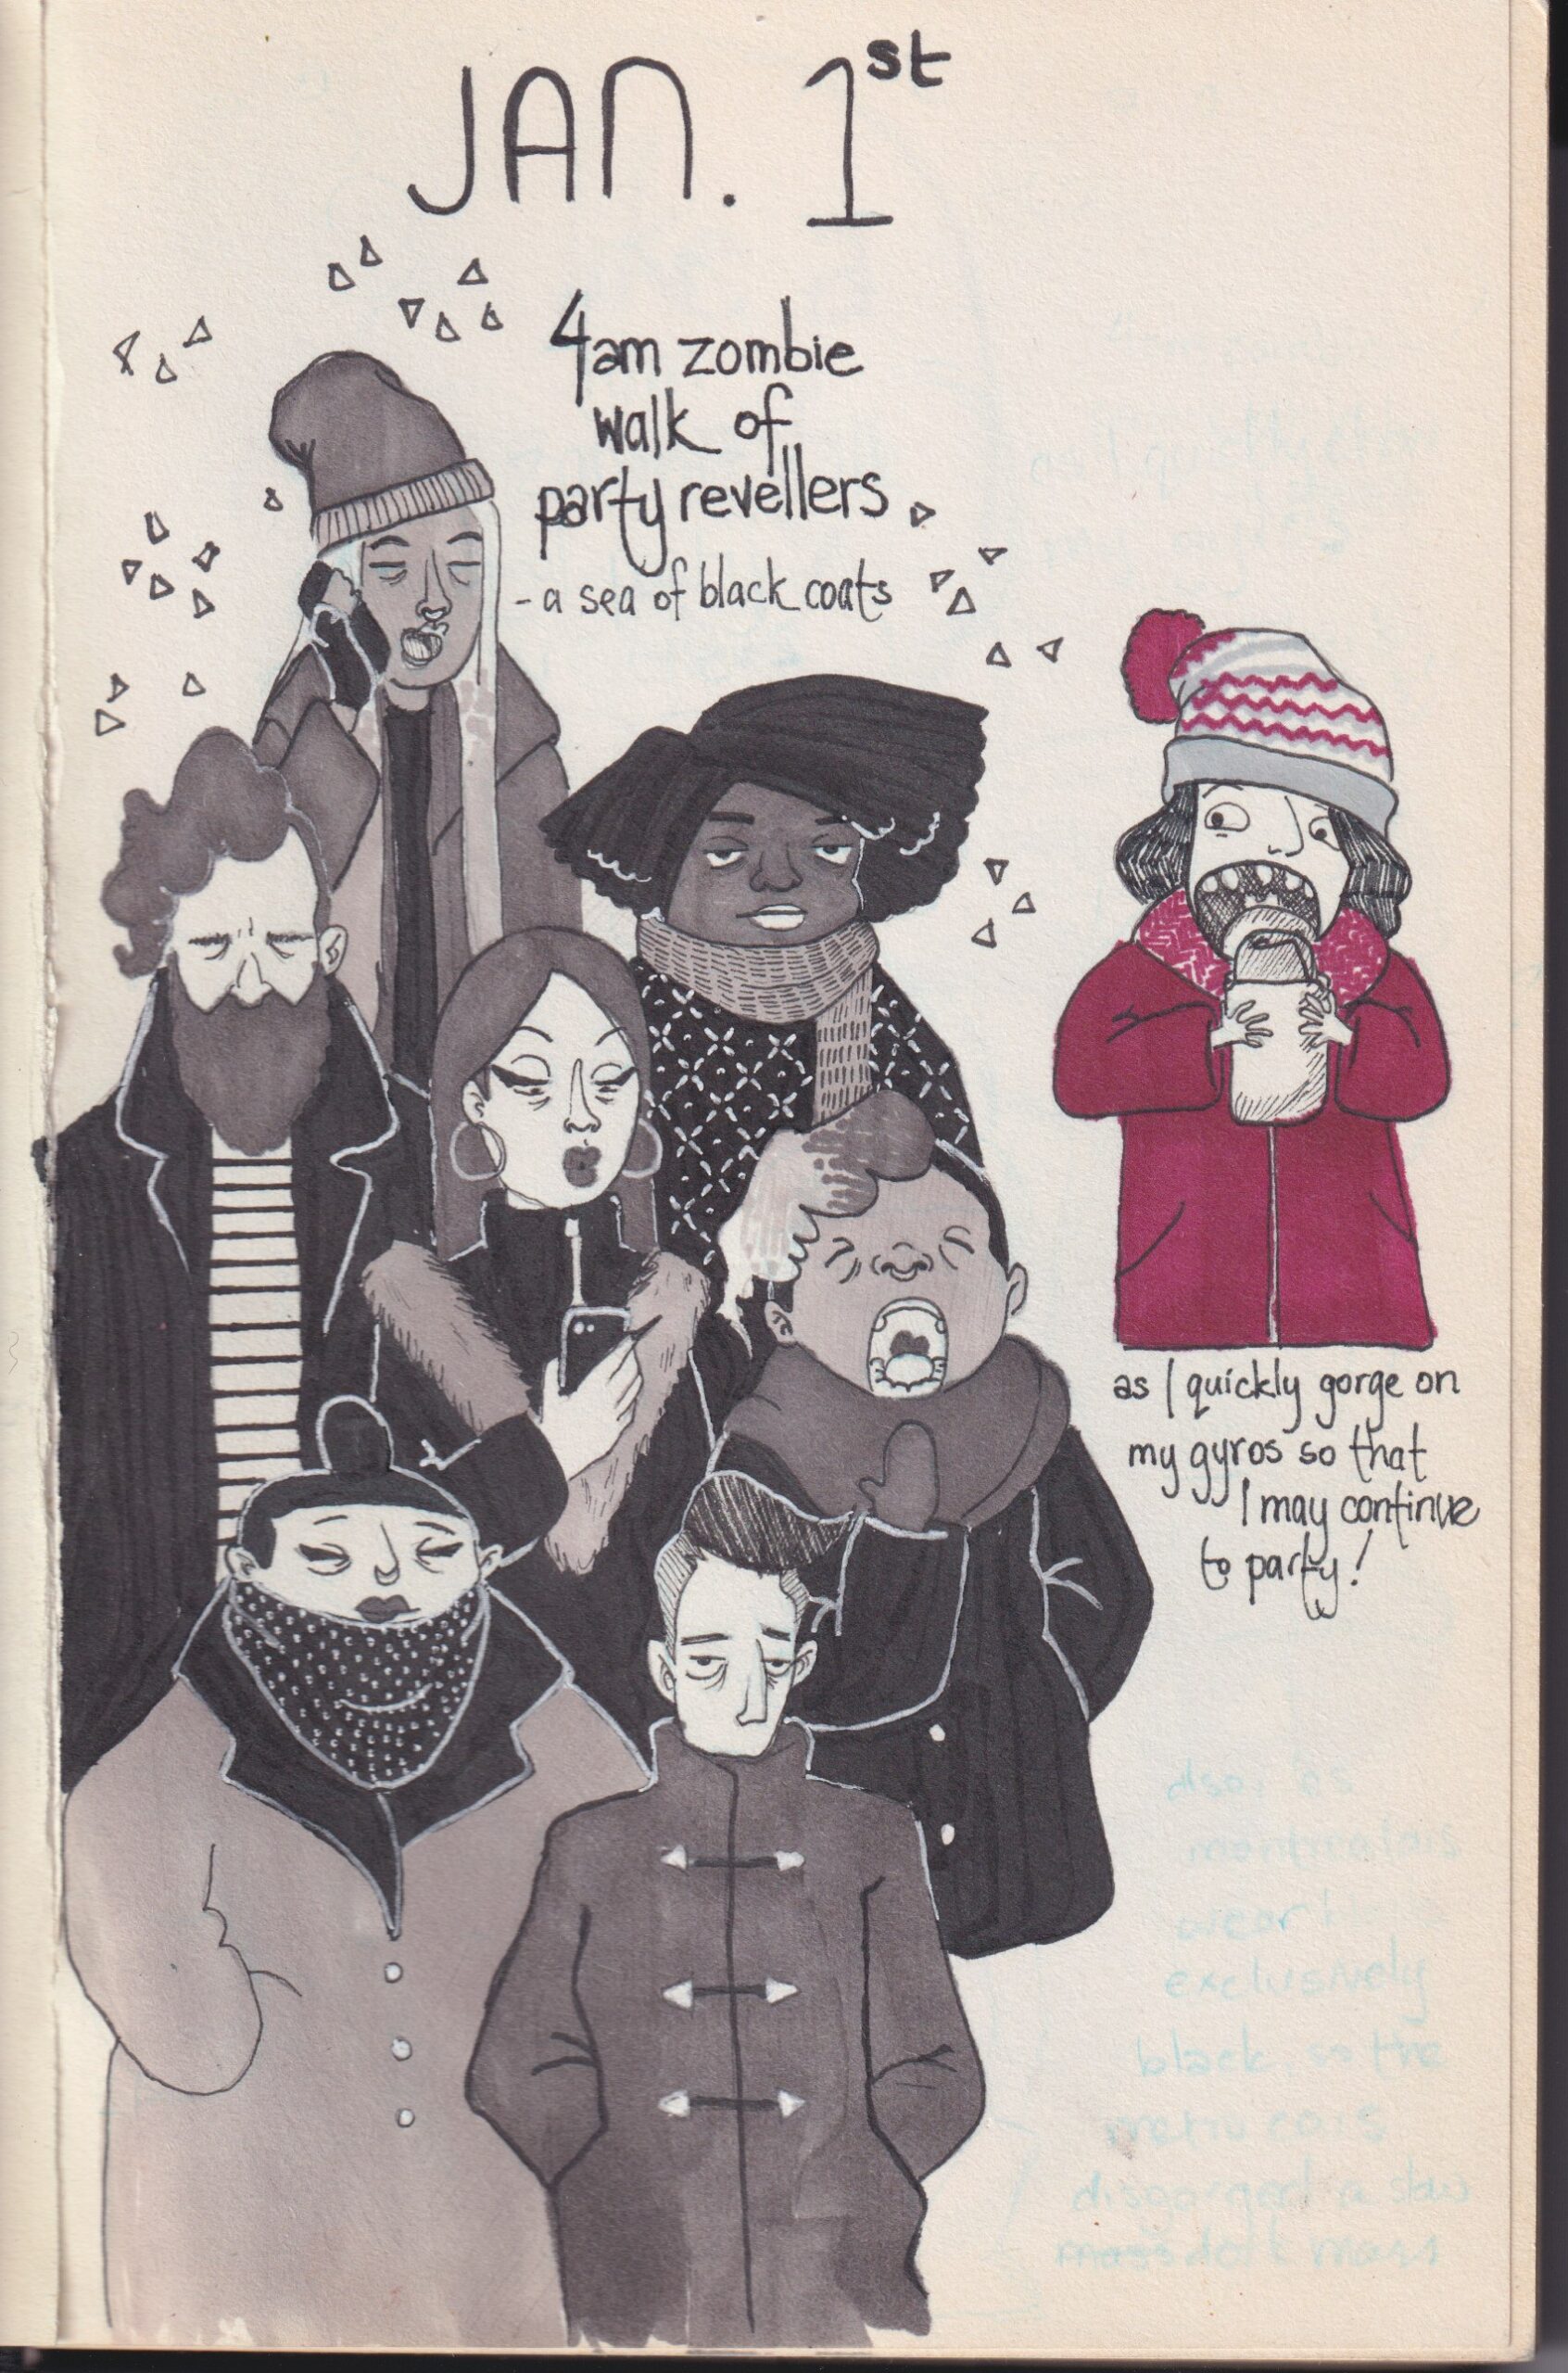 JAN. 1st
4am zombie
walk of
party revellers
- a sea of black coats
as I quickly gorge on
my gyros so that
I may continue
to party!
also, as
wear
exclusively
black, so the
disgorged a slow
mass dark mass